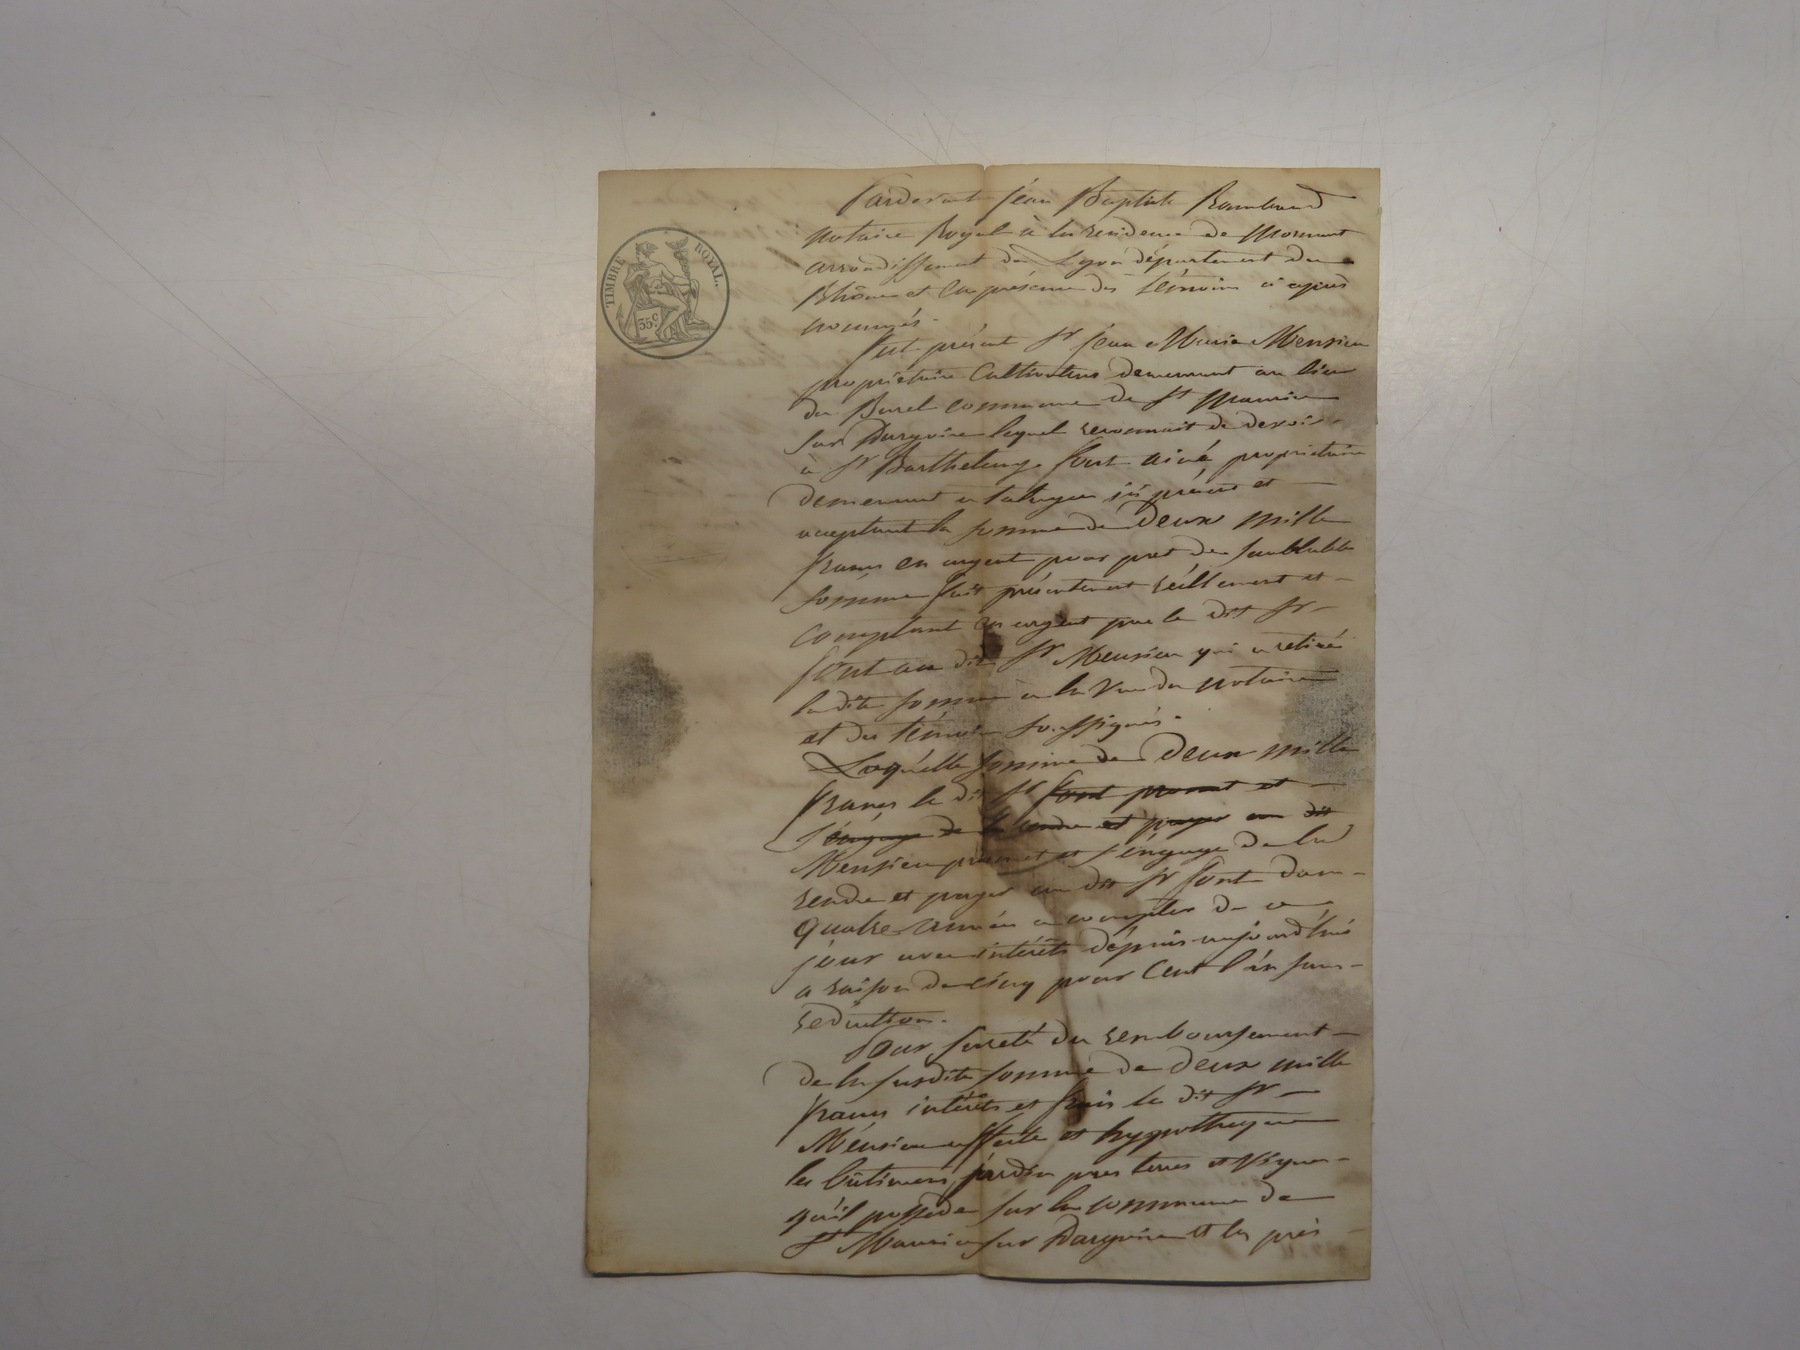 TIMBRE ROYAL.
35c.
Pardevant jéan Baptiste Rambaud
notaire Royal à la residence de Mornant
arrondissement de Lyon département du
Rhône et en présence des témoins ci après
nommés.
fut présent Sr jean Marie Mensieu
propriétaire Cultivateur demeurant au lieu
du Burel commune de St Maurice
sur Dargoire lequel reconnait de devoir
à Sr Barthelemy font ainé propriétaire
demeurant a ici présent et
acceptant la somme de Deux mille
francs en argent pour pret de semblable
somme fait présentement réellement et
comptant en argent par le dit Sr
font au dit Sr Mensieu qui a retiré
la dite somme à la Vue du notaire
et des témoins soussignés.
Laquelle somme de Deux mille
francs le dit Sr font promet et
s'éngage de la rendre et payer au dit
Mensieu promet et s'éngage de la
rendre et payer au dit Sr font dans
quatre années a compter de ce
jour avec intérêts dépuis aujourd'hui
a raison de cinq pour Cent l'an sans
reduction.
Pour sureté du remboursement
de la susdite somme de deux mille
francs intérêts et frais le dit Sr
Ménsieu affecte et hypothèque
les bâtiments, jardin pres terres et Vignes
qu'il possède sur la commune de
St Maurice sur Dargoire et les près